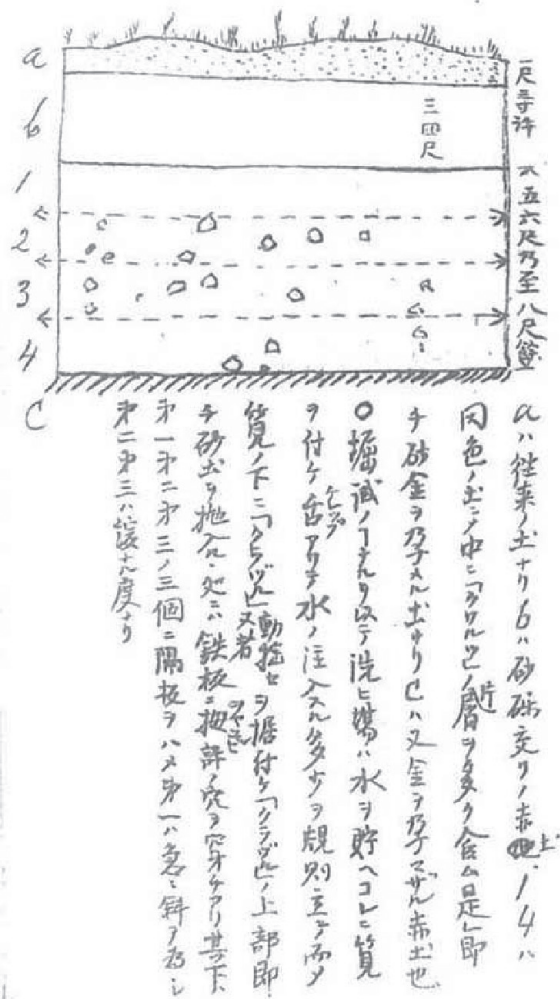 a
b
1
2
3
4
C
一尺三寸許
三四尺
五六尺乃至八尺
aハ往来ノ土ナリbハ砂礫交リノ赤土、14ハ
同色ノ土ニノ中ニ「クワルツ」ノ層片ヲ多ク含ム是レ即
チ砂金ヲ孕メル土ナリCハ又金ヲ孕マザル赤土也
○掘減ノ洗ヒ場ハ水ヲ貯ヘコレニ筧
ヲ付ケ舌アリテ水ノ注入スル多少ヲ規則立テ而メ
筧ノ下ニ「クレヅル」動揺セヲ据付ケ「クラヅル」ノ上部即
チ砂土ヲ抛入ル処ニハ鉄板ニ拇許ノ穴ヲ穿チアリ其下ニ
第一第二第三ノ三個ニ隔板ヲハメ第一ハ急ニ斜ヲ為シ
第二第三ハ緩ナル度ナリ